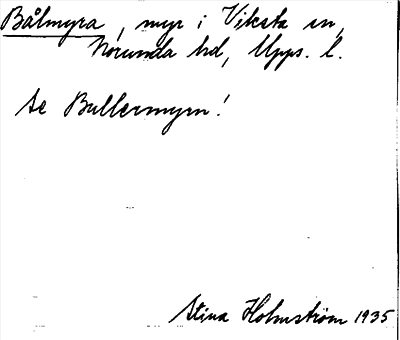 Bålmyra, myr i Viksta sn,
Norunda hd, Upps. l.
Se Bullermyrn!
Stina Holmström 1935